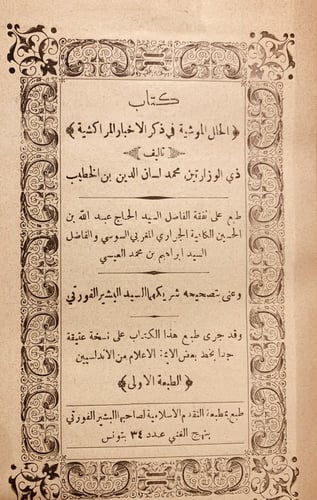 كتاب
﴿الحلل الموشية في ذكر الاخبار المراكشية﴾
تاليف
ذي الوزارتين محمد لسان الدين بن الخطيب
طبع على نفقة الفاضل السيد الحاج عبد الله بن
الحسين الجراري المغربي السوسي والفاضل
السيد ابراهيم بن محمد العيسي
وعنى بتصحيحه شريكهما السيد البشير الفورتي
وقد جرى طبع هذا الكتاب على نسخة عتيقة
جدا بخط بعض الايمة الاعلام من الاندلسيين
﴿الطبعة الاولى﴾
طبع بمطبعة التقدم الاسلامية لصاحبها البشير الفورتي
بنهج المفتي عدد ٣٤ بتونس